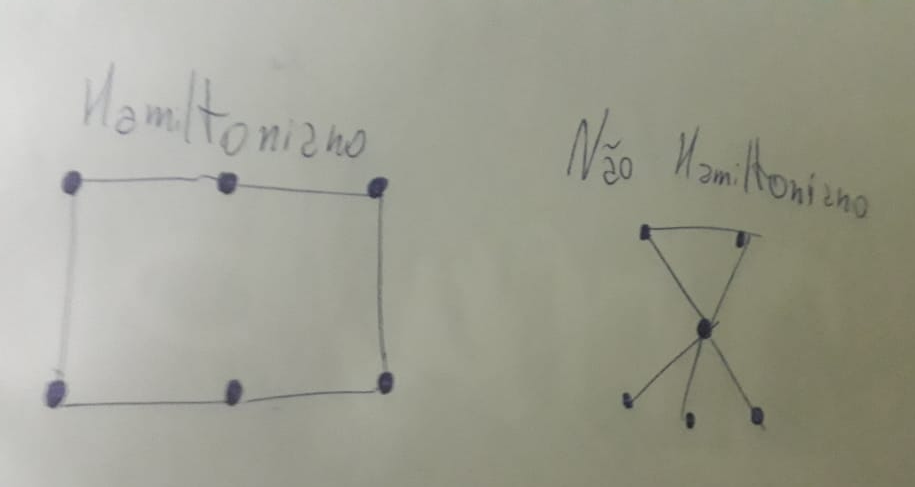 Hamiltoniano
Não Hamiltoniano